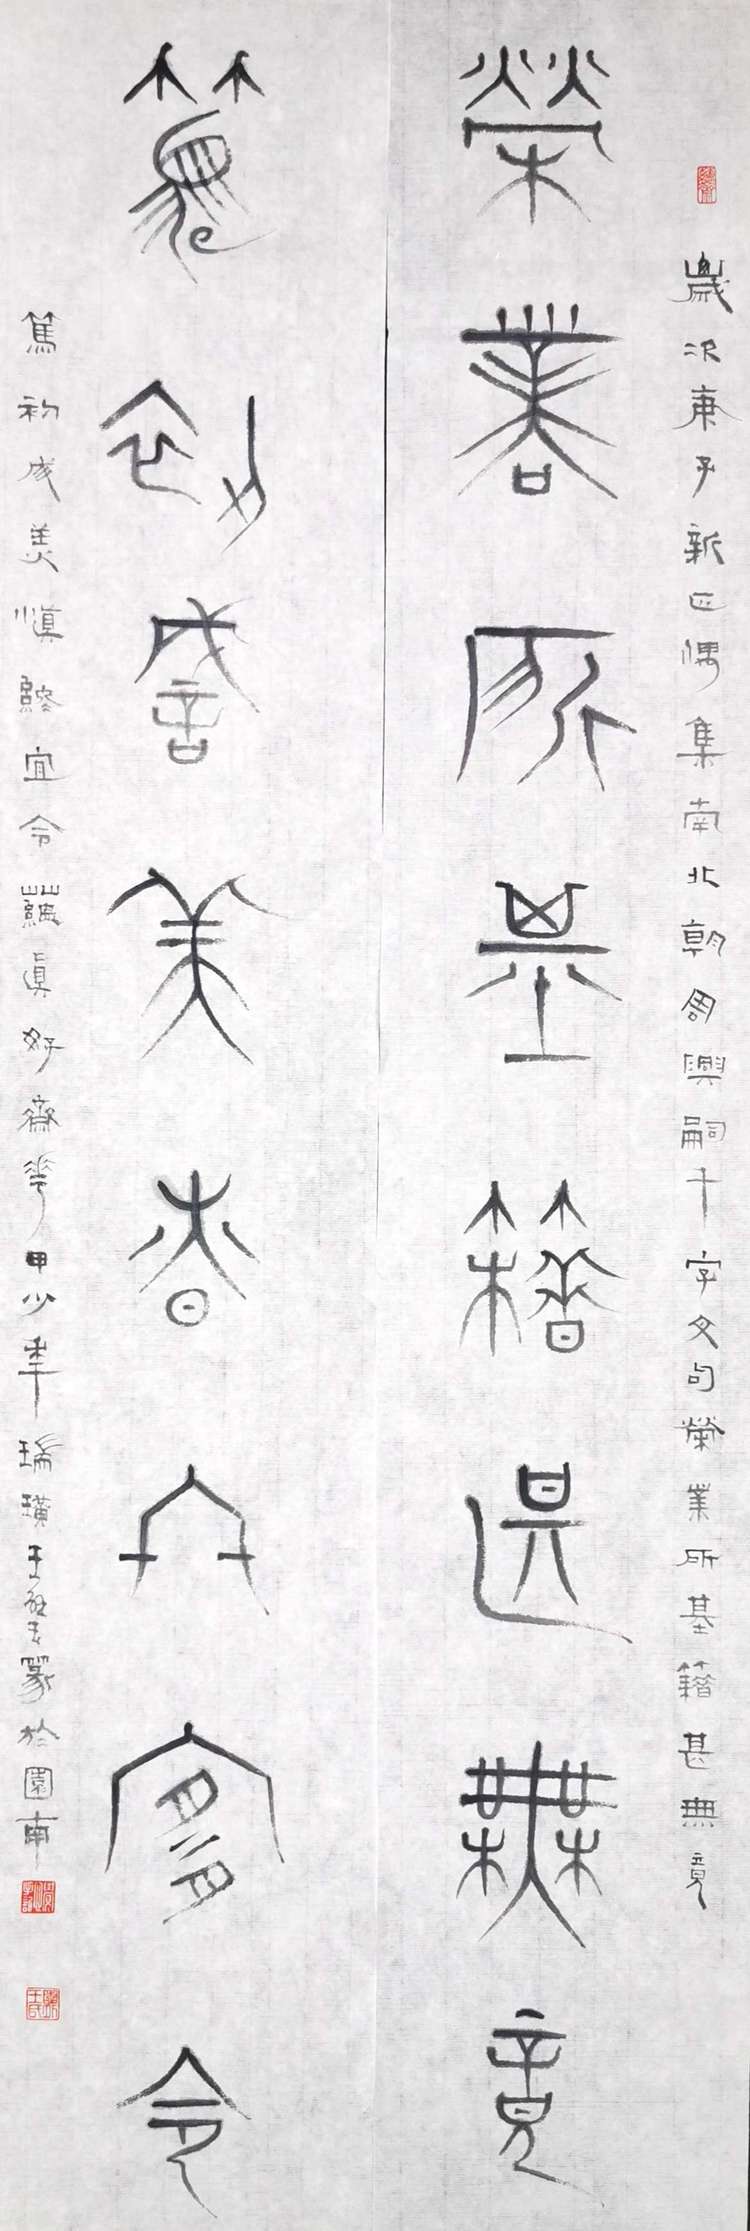 歲次庚子新正偶集南北朝周興嗣千字文句榮業所基籍甚無竟
榮業所基籍甚無竟
篤初誠美慎終宜令
篤初成美慎終宜令真好齋華甲少年瑞璜王篆於園南